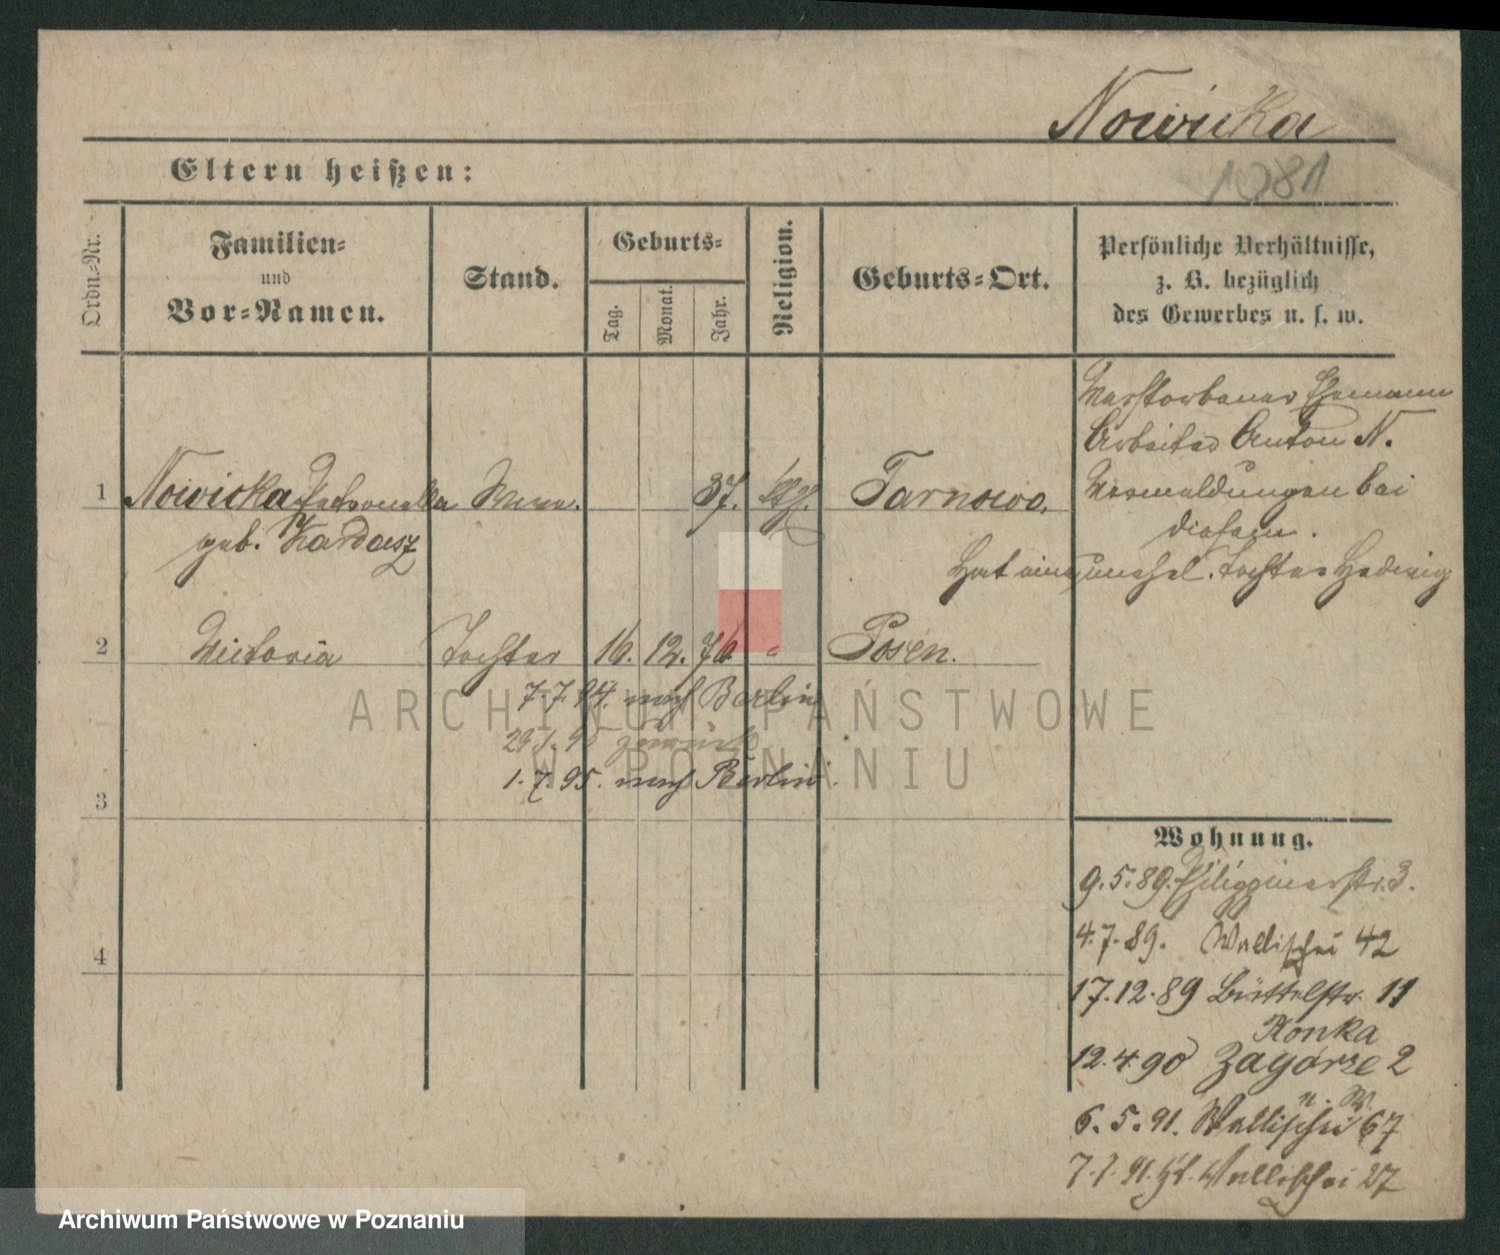 Nowicka
1081
Eltern heißen:
Ordn.-Nr.
Familien-
und
Vor-Namen.
Stand.
Geburts-
Tag.
Monat.
Jahr.
Religion.
Geburts-Ort.
Persönliche Verhältnisse,
z. B. bezüglich
des Gewerbes u. s. w.
Verstorbener Ehemann
Arbeiter Anton N.
1 Nowicka Petronella 37. Tarnowo. Vermeldungen bei
geb. Kardasz diesem.
Hat eine unehel. Tochter Hedwig
2 Victoria Tochter 16. 12. 76 " Posen.
7.7.94. nach Berlin
29.1.95 zurück
1.7.95. nach Berlin.
3
4
Wohnung.
9.5.89. Philippinerstr. 3.
4.7.89. Wallischei 42
17.12.89 Büttelstr. 11
Konka
12.4.90 Zagórze 2
6.5.91. Wallischei 67
7.7.91. Wallischei 27
ARCHIWUM PAŃSTWOWE
W POZNANIU
Archiwum Państwowe w Poznaniu